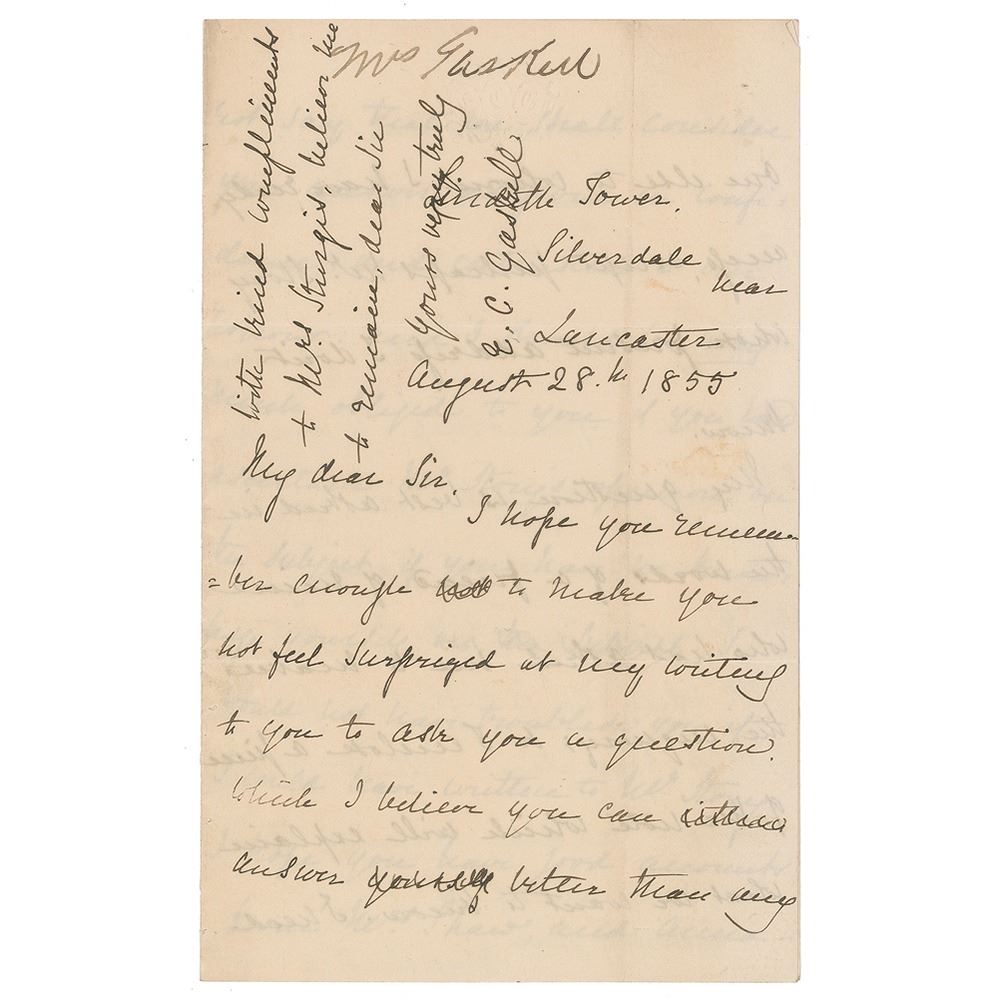 Mrs Gaskell
Lindeth Tower,
Silverdale
near
Lancaster
August 28.th 1855
My dear Sir,
I hope you remem-
=ber enough not to make you
not feel surprized at my writing
to you to ask you a question.
which I believe you can either
answer yourself better than any
with kind compliments
to Mrs Sturgis, believe me
to remain, dear Sir
Yours very truly
E. C. Gaskell